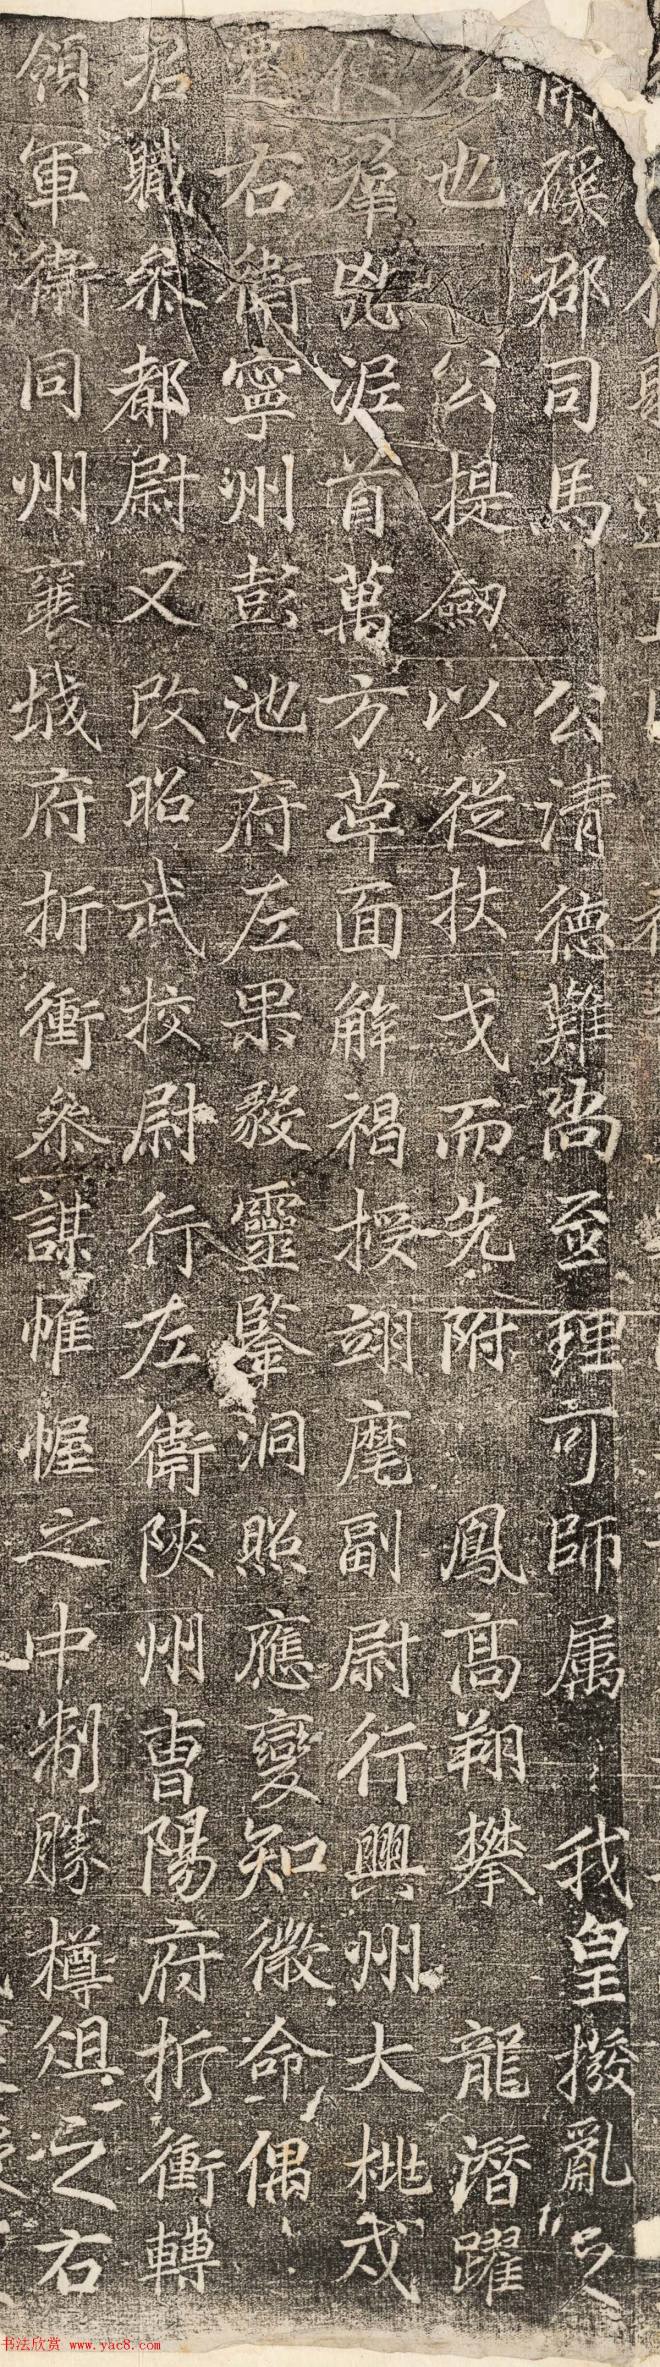 礠郡司馬公清德難尚至理可師属我皇撥亂之
也公提劒以從扙戈而先附鳳高翔攀龍潛躍
使羣兇泥首萬方革面解褐授翊麾副尉行興州大桃戍
右衛寧州彭池府左果毅靈鑒洞照應變知微命偶
君職參都尉又改昭武校尉行左衛陝州曹陽府折衝轉
領軍衛同州襄城府折衝參謀帷幄之中制勝樽俎之右
书法欣赏 www.yac8.com